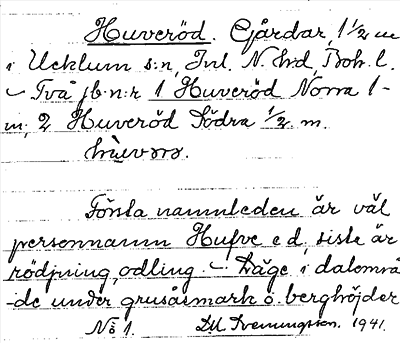 Huveröd. Gårdar, 1 1/2 m
i Ucklum s:n, Inl. N. h:d, Boh. l.
– Två jb.n:r 1 Huveröd Norra 1
m; 2 Huveröd Södra 1/2 m.
Första namnleden är väl
personnamn Hufve e d, siste är
rödjning, odling. – Läge i dalområ
-de under grusåsmark o. berghöjder
No 1. 1941.